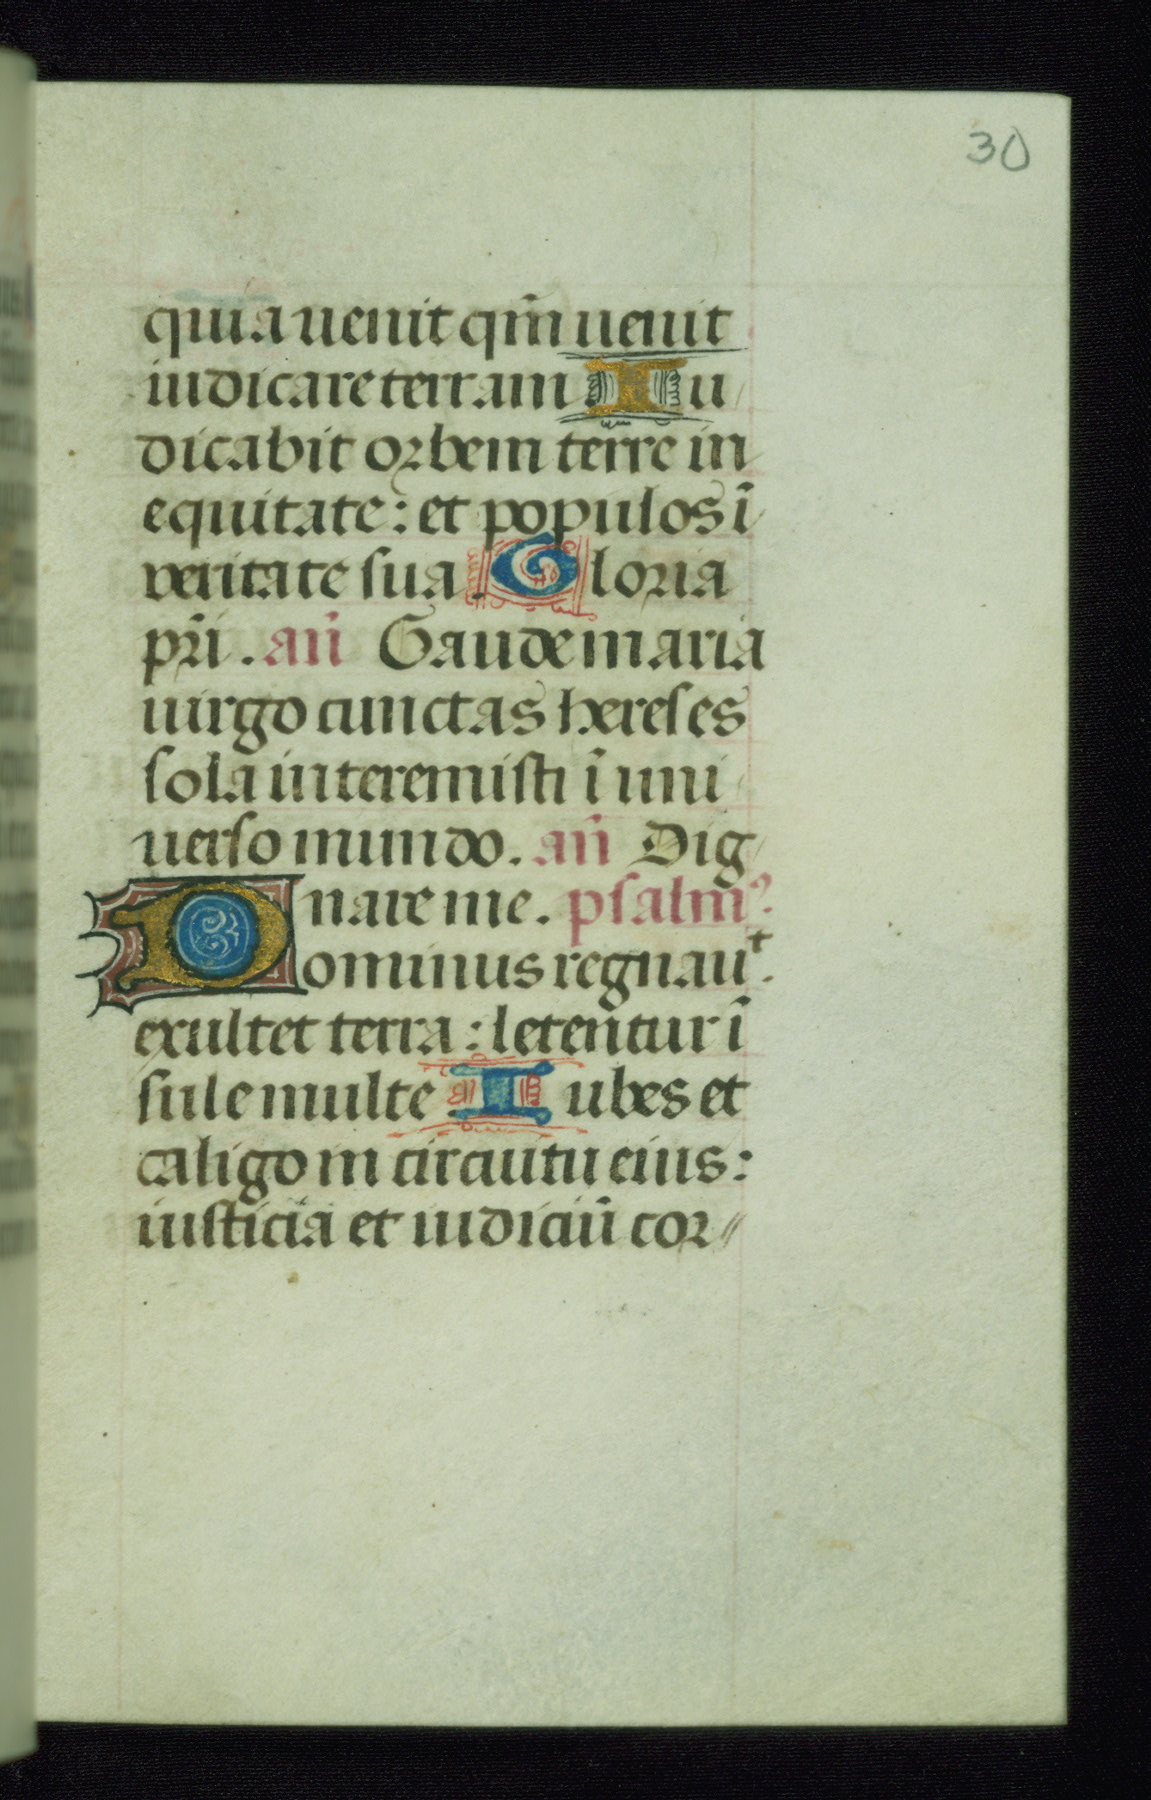 30
quia uenit qm̄ uenit
iudicare terram Iu
dicabit orbem terre in
equitate: et populos ī
veritate sua. Gloria
pr̄i. an̄ Gaude maria
uirgo cunctas hereses
sola interemisti ī uni
uerso mundo. an̄ Dig
nare me. psalmꝰ.
Dominus regnauͭ.
exultet terra: letentur ī
sule multe Iubes et
caligo in circuitu eius:
iusticia et iudiciū cor//